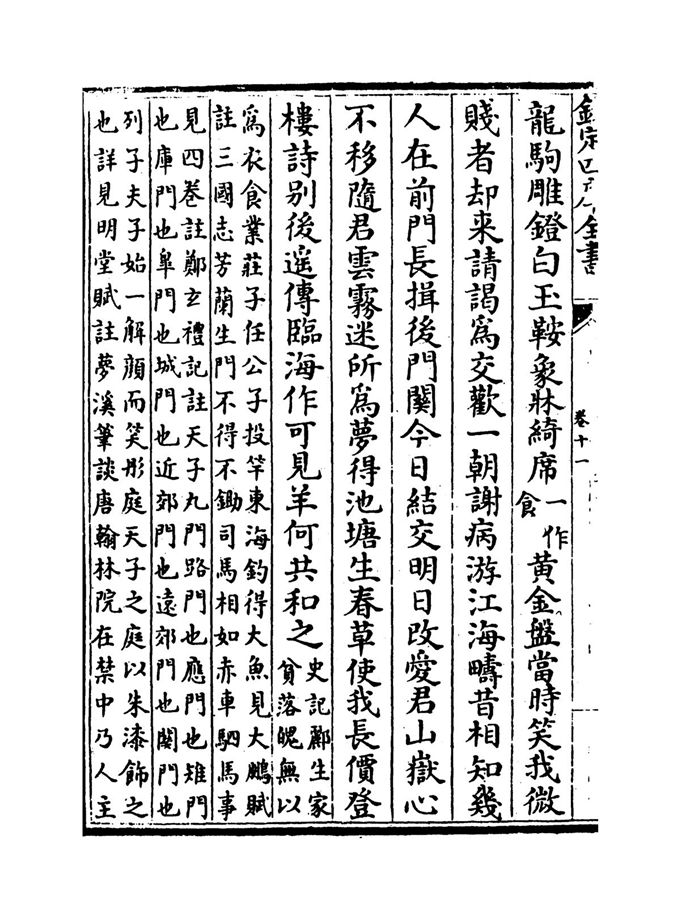 欽定四庫全書
卷十一
龍駒雕鐙白玉鞍象牀綺席一作食黄金盤當時笑我微
賤者却来請謁爲交歡一朝謝病游江海疇昔相知幾
人在前門長揖後門關今日結交明日改愛君山嶽心
不移隨君雲霧迷所爲夢得池塘生春草使我長價登
樓詩别後遥傳臨海作可見羊何共和之史記酈生家
貧落魄無以
爲衣食業莊子任公子投竿東海釣得大魚見大鵬賦
註三國志芳蘭生門不得不鋤司馬相如赤車駟馬事
見四巻註鄭玄禮記註天子九門路門也應門也雉門
也庫門也臯門也城門也近郊門也遠郊門也闗門也
列子夫子始一解顔而笑彤庭天子之庭以朱漆飾之
也詳見明堂賦註夢溪筆談唐翰林院在禁中乃人主